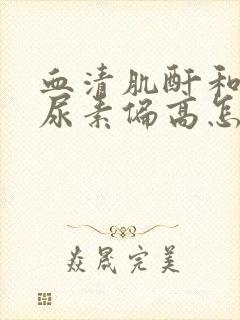 血清肌酐和
尿素偏高怎
焱晟完美